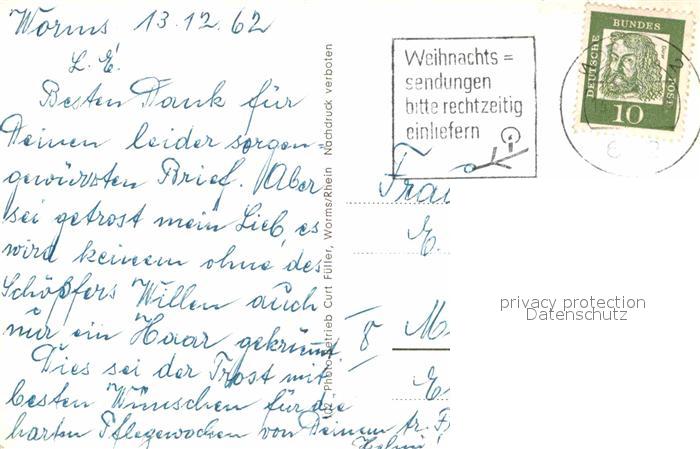 Worms 13.12.62
L. E.
Besten Dank für
Deinen leider sorgen=
gewürzten Brief. Aber
sei getrost mein Lieb, es
wird keinem ohne des
Schöpfers Willen auch
nur ein Haar gekrümmt
Dies sei der Trost mit
besten Wünschen für die
harten Pflegewochen von Deinem tr. F
Photo-Betrieb Curt Füller, Worms/Rhein Nachdruck verboten
Weihnachts=
sendungen
bitte rechtzeitig
einliefern
DEUTSCHE BUNDESPOST
10
Frau
E.
8 M
E
privacy protection
Datenschutz